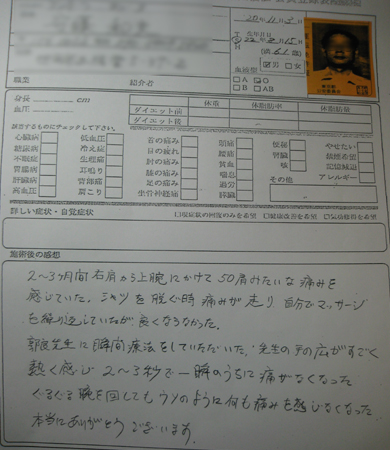 職業
紹介者
血液型
□A □O
□B □AB
身長 cm
血圧
体重 体脂肪率 体脂肪量
ダイエット前
ダイエット後
該当するものにチェックして下さい。
心臓病 □ 低血圧 □ 首の痛み □ 頭痛 □ 便秘 □ やせたい □
糖尿病 □ 冷え症 □ 目の疲れ □ 腰痛 □ 腎臓 □ 禁煙希望 □
不眠症 □ 生理痛 □ 肘の痛み □ 貧血 □ 咳 □ 記憶減退 □
胃腸病 □ 耳鳴り □ 膝の痛み □ 喘息 □ その他 アレルギー □
肝臓病 □ 足の痛み □ 過労 □
高血圧 □ 肩こり □ 坐骨神経痛 □ 肝臓 □
詳しい症状・自覚症状
施術後の感想
2〜3ヶ月間右肩から上腕にかけて50肩みたいな痛みを
感じていた。シャツを脱ぐ時痛みが走り自分でマッサージ
を繰り返していたが良くならなかった。
郭良先生に瞬間療法をしていただいた。先生の手の広がすごく
熱く感じ2〜3秒で一瞬のうちに痛がなくなった
ぐるぐる腕を回してもウソのように何も痛みを感じなくなった。
本当にありがとうございます。